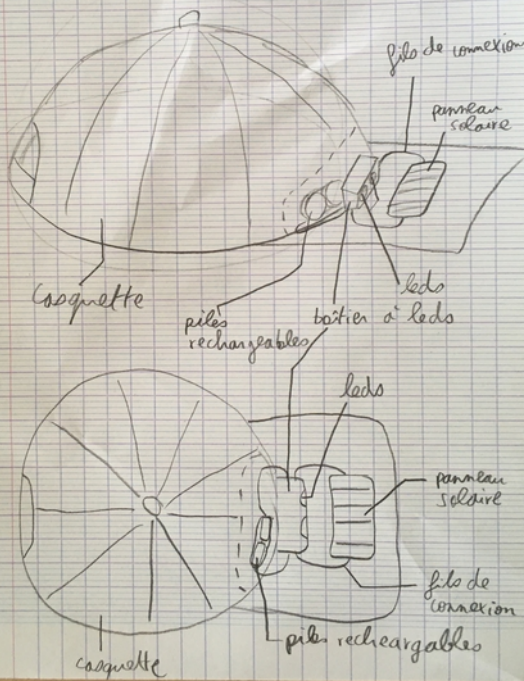 fils de connexion
panneau
solaire
casquette
piles
rechargeables
boîtier à leds
leds
leds
panneau
solaire
fils de
connexion
piles recheargables
casquette